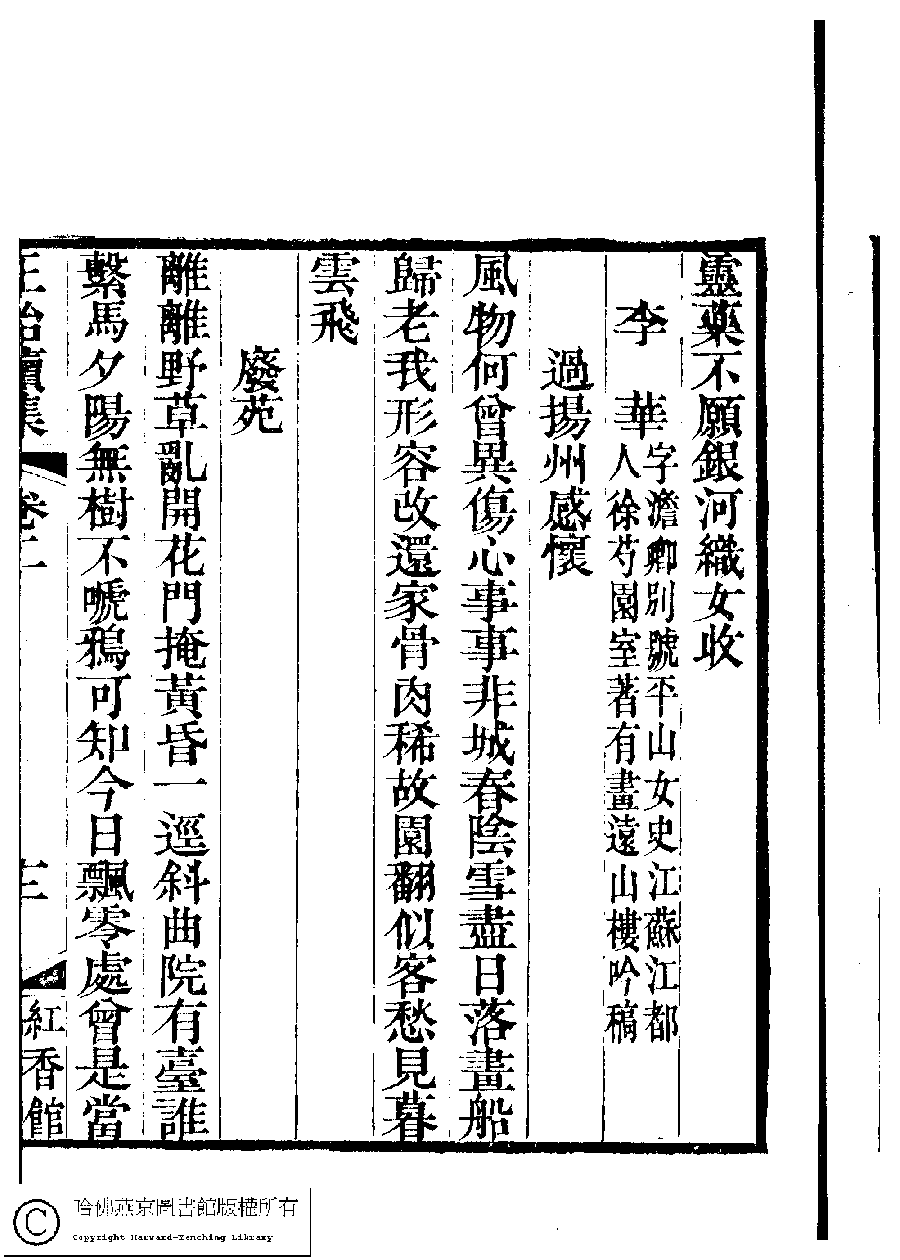 靈藥不願銀河織女收
李　華 字澹卿別號平山女史江蘇江都
人徐芍園室著有畫遠山樓吟稿
過揚州感懷
風物何曾異傷心事事非城春陰雪盡日落畫船
歸老我形容改還家骨肉稀故園翻似客愁見暮
雲飛
廢苑
離離野草亂開花門掩黃昏一逕斜曲院有臺誰
繫馬夕陽無樹不嗁鴉可知今日飄零處曾是當
正始續集 卷二 三 紅香館
哈佛燕京圖書館版權所有
Copyright Harvard-Yenching Library